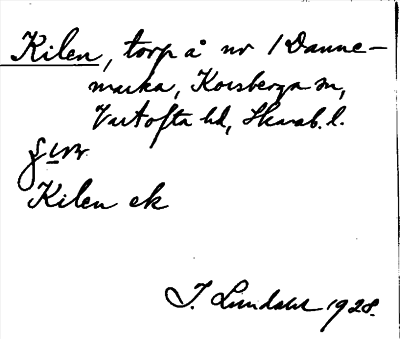 Kilen, torp å nr 1 Danne-
marka, Korsberga sn,
Vartofta hd, Skarab. l.
Kilen ek
J. Lundahl 1928.